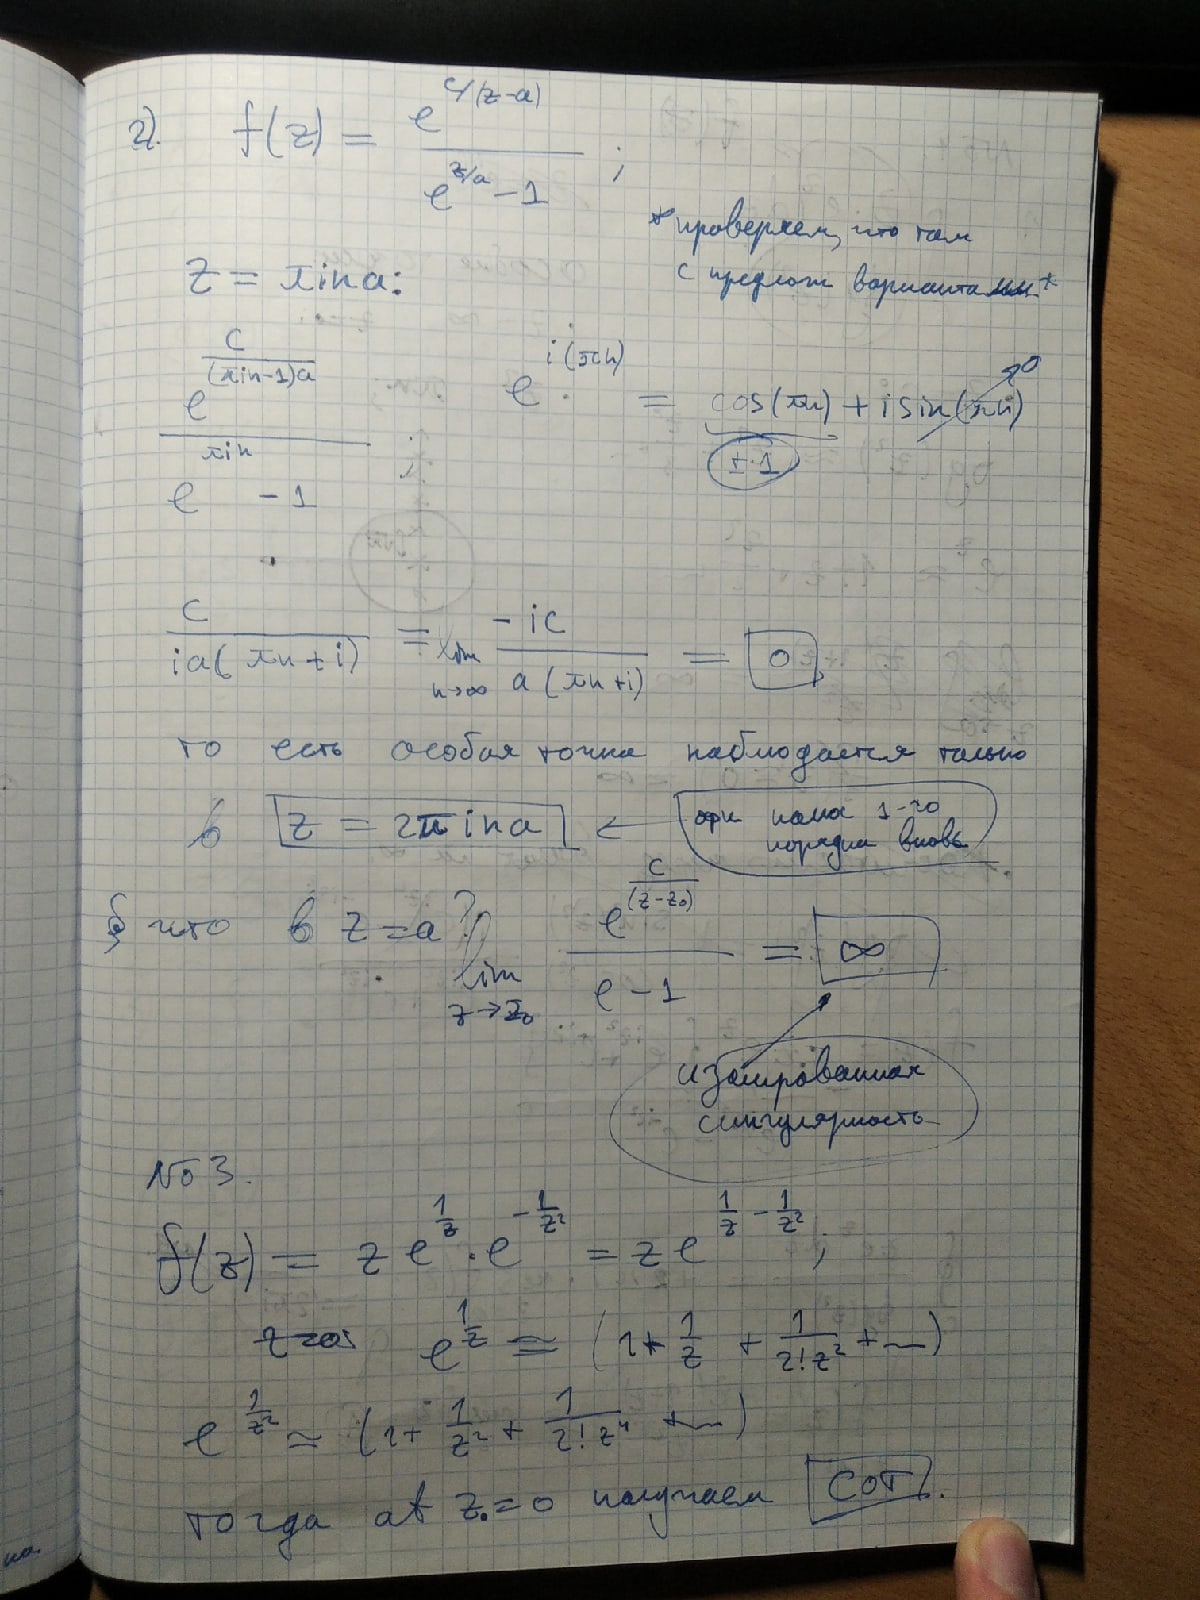 2). f(z) = e^{c/(z-a)} / (e^{z/a} - 1) ;
* проверяем, что там
с предлож вариантами *
z = πina:
e^{c/((πin-1)a)} / (e^{πin} - 1)
e^{i(πn)} = cos(πn) + i sin(πn) → 0
± 1
c / (ia(πn+i)) = lim_{n→∞} -ic / (a(πn+i)) = 0,
то есть особая точка наблюдается только
в z = 2πina ←
полюса 1-го
порядка вновь
что в z=a? lim_{z→z₀} e^{c/(z-z₀)} / (e-1) = ∞
изолированная
сингулярность
No 3.
f(z) = z e^{1/z} · e^{-1/z²} = z e^{1/z - 1/z²} ;
e^{1/z} ≃ (1 + 1/z + 1/(2!z²) + ...)
e^{1/z²} ≃ (1 + 1/z² + 1/(2!z⁴) + ...)
тогда at z=0 получаем СОТ.
на.